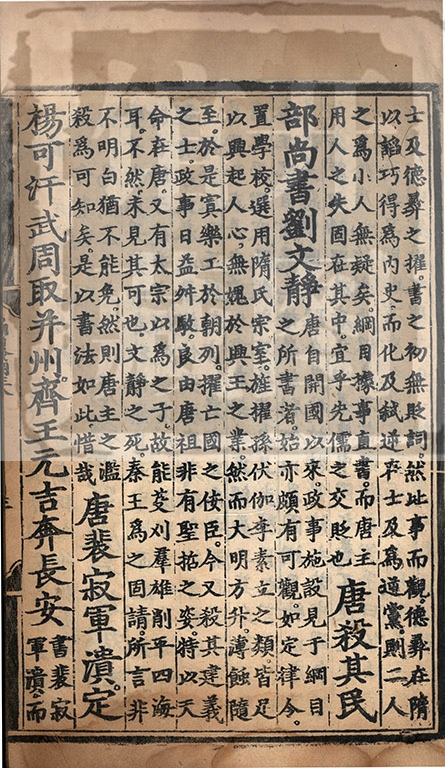 士及德彝之擢。書之初無貶詞。然此事而觀德彝在隋
以謟巧得爲内史而化及弑逆士及爲黨。則二人
之爲小人無疑矣。綱目據事直書。而唐主
用人之失固在其中。宜乎先儒之交貶也
唐殺其民
部尚書劉文靜
唐自開國以來。政事施設見于綱目
之所書者。始亦頗有可觀。如定律令。
置學校。選用隋氏宗室。旌擢孫伏伽李素立之類。皆足
以興起人心。無媿於興王之業。然而大明方升。薄蝕隨
至。於是寘樂工於朝列。擢亡國之佞臣。今又殺其建義
之士。政事日益舛駁。良由唐祖非有聖哲之姿。特以天
命在唐。又有太宗以爲之子。故能芟刈羣雄削平四海
耳。不然未見其可也。文靜之死。秦王爲之固請。所言非
不明白。猶不能免。然則唐主之濫
殺爲可知矣。是以書法如此。惜哉
唐裴寂軍潰。定
楊可汗武周取并州。齊王元吉奔長安
書裴寂
軍潰。而